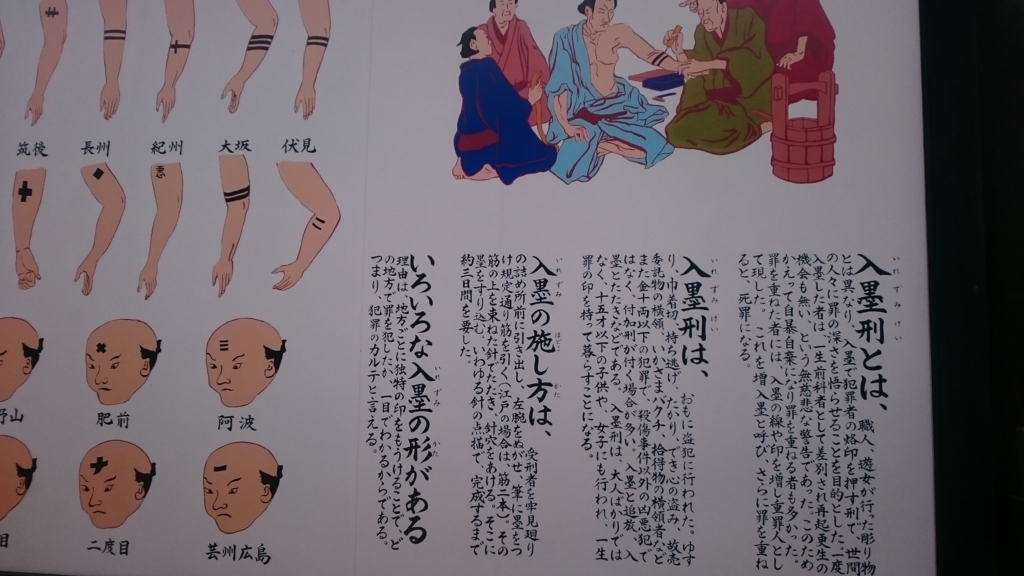 入墨刑とは、
いれずみけい
職人、遊女が行った彫り物
とは異なり、入墨で犯罪者の烙印を押す刑で、世間
の人々に罪の深さを悟らせることを目的とした。一度
入墨した者は、一生前科者として差別され再起更生の
機会も無い、という無慈悲な警告であった。このため
かえって自暴自棄になり罪を重ねる者も多かった。
罪を重ねた者には、入墨の線や印を増し重罪人とし
て現した。これを増入墨と呼び、さらに罪を重ね
ると、死罪になる。
入墨刑は、
いれずみけい
おもに盗犯に行われた。ゆす
り、巾着切り、持ち逃げ、かたり、でき心の盗み、故売
委託物の横領、いかさまバクチ、拾得物の横領者など
また金十両以下の犯罪で、殺傷事件以外の凶悪犯で
はなく、付加刑が付く場合が多い。入墨と追放、入
墨とたたきなどである。入墨刑は、大人ばかりでは
なく、十五才以下の子供や、女子にも行われ、一生
罪の印を持って暮らすことになる。
入墨の施し方は、
いれずみ ほど かた
受刑者を牢見廻り
の詰め所前に引き出し、左腕をぬがせ、筆に墨をつ
け規定通り筋を引く(江戸の場合は、筋二本)その
筋の上を束ねた針でたたき、針穴をあける。そこに
墨をすり込む、いわゆる針の点描で、完成するまで
約三日間を要した。
いろいろな入墨の形がある
いれずみ かた
理由は、地方ごとに独特の印をもうけることで、ど
の地方で罪を犯したか、一目でわかるからである。
つまり、犯罪のカルテと言える。
伏見
大坂
紀州
長州
筑後
悪
阿波
肥前
野山
芸州広島
二度目
目